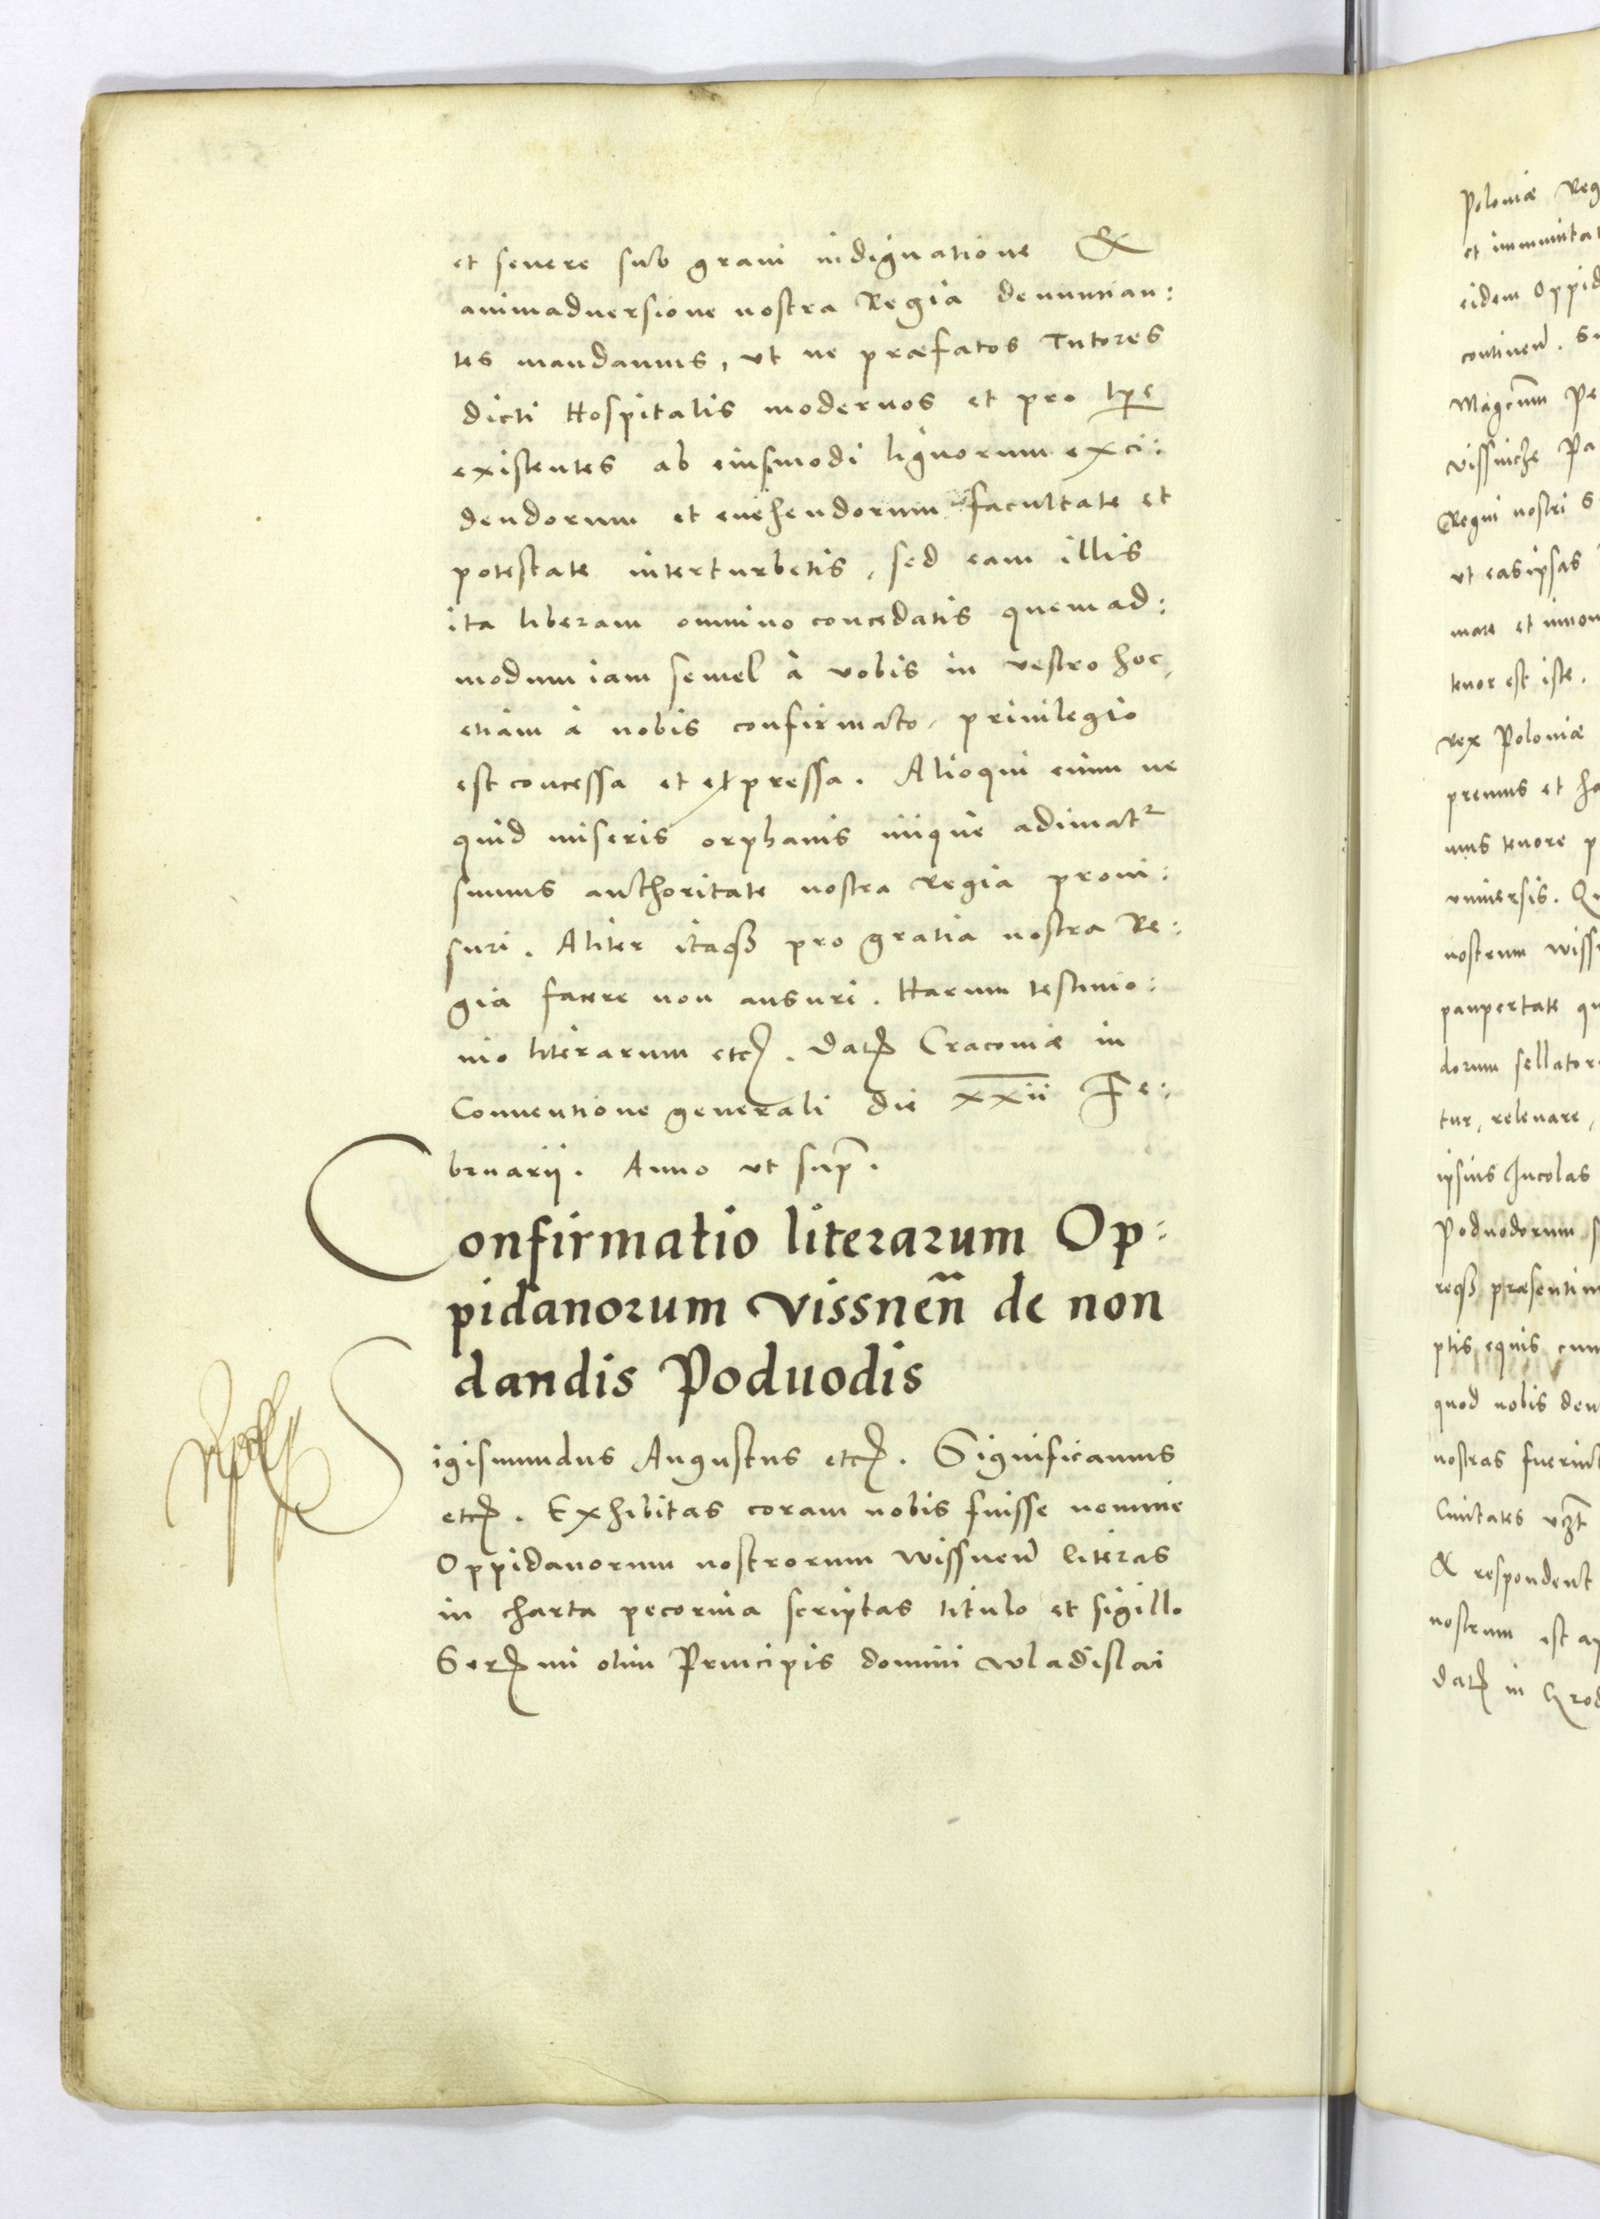 et seuere sub graui indignatione &
animaduersione nostra Regia denuncian:
tes mandamus, vt ne præfatos Tutores
dicti Hospitalis modernos et pro tpe
existentes ab eiusmodi lignorum exci:
dendorum et euehendorum facultate et
potestate interturbetis, sed eam illis
ita liberam omnino concedatis quemad:
modum iam semel à vobis in vestro hoc,
etiam à nobis confirmato, priuilegio
est concessa et expressa. Alioqui enim ne
quid miseris orphanis inique adimatr
sumus authoritate nostra Regia proui:
suri. Aliter itaqȝ pro gratia nostra Re:
gia facere non ausuri. Harum testimo:
nio literarum etc. Dat Cracouiæ in
Conuentione generali die xxii Fe:
bruarii. Anno vt sup.
Confirmatio literarum Op:
pidanorum Vissnen̄ de non
dandis Poduodis
Sigismundus Augustus etc. Significamus
etc. Exhibitas coram nobis fuisse nomine
Oppidanorum nostrorum Wissnen̄ literas
in charta pecorina scriptas titulo et sigillo
Sermi olim Principis domini Wladislai
Poloniæ Reg
et immunitat
eidem Oppid
continen̄. S
Magcum Pe
Vissniche Pa
Regni nostri S
vt eas ipsas
mare et innou
tenor est iste.
Rex Poloniæ
premus et ha
mus tenore p
vniuersis. Q
nostrum Wiss
paupertate qu
dorum sellator
tur, releuare,
ipsius Incolas
Poduodorum s
reqȝ præsentim
ptis equis cum
quod nobis den
nostras fuerint
Ciuitates
& respondent
nostrum est ap
Dat in Grod